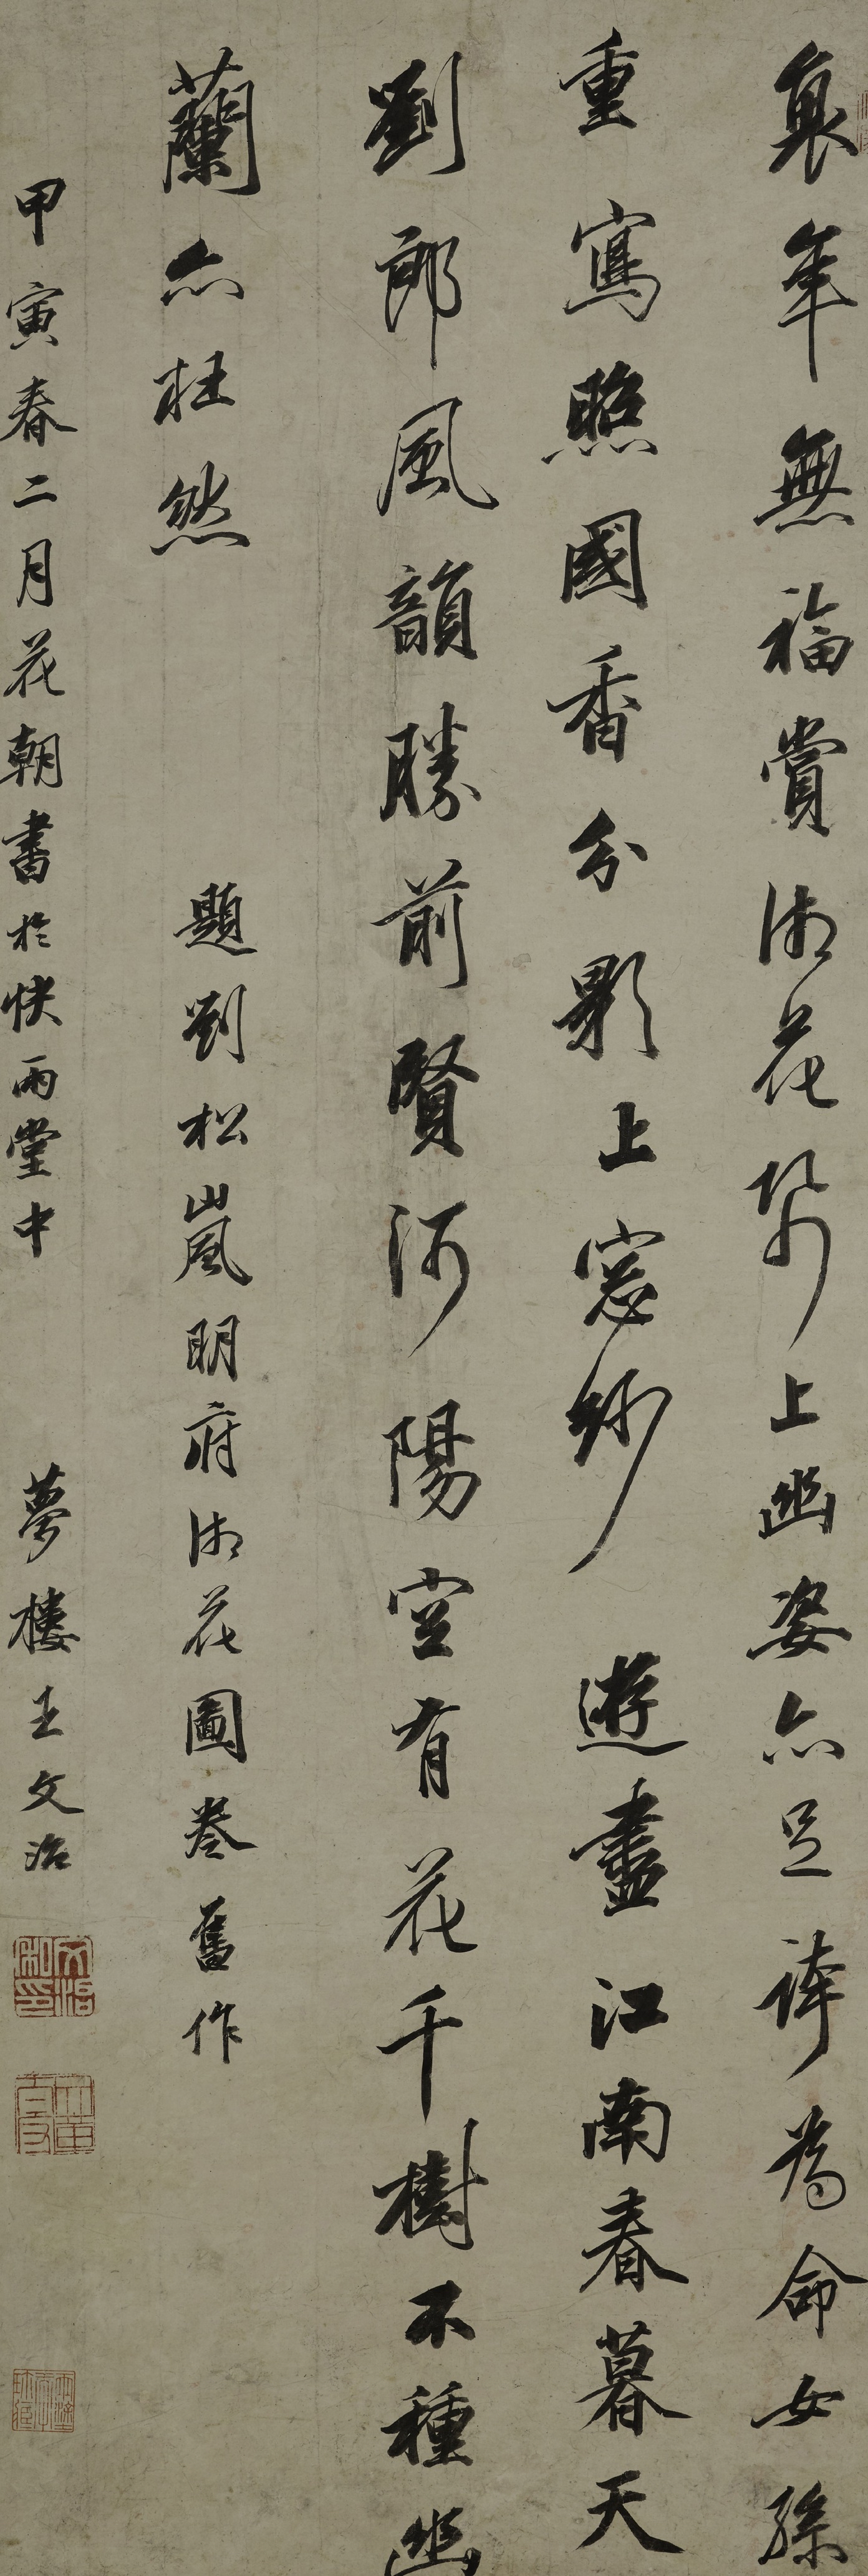 衰年無福賞湘花帋上幽姿亦足誇為命女孫
重寫照國香分影上窓紗遊盡江南春暮天
劉郎風韻勝前賢河陽空有花千樹不種幽
蘭亦枉然
題劉松嵐明府湘花圖卷舊作
甲寅春二月花朝書於快雨堂中
夢樓王文治
文治私印